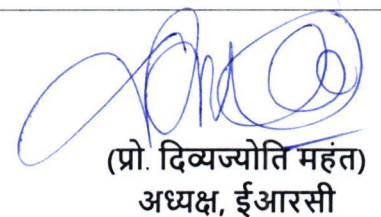 (प्रो. दिव्यज्योति महंत)
अध्यक्ष, ईआरसी